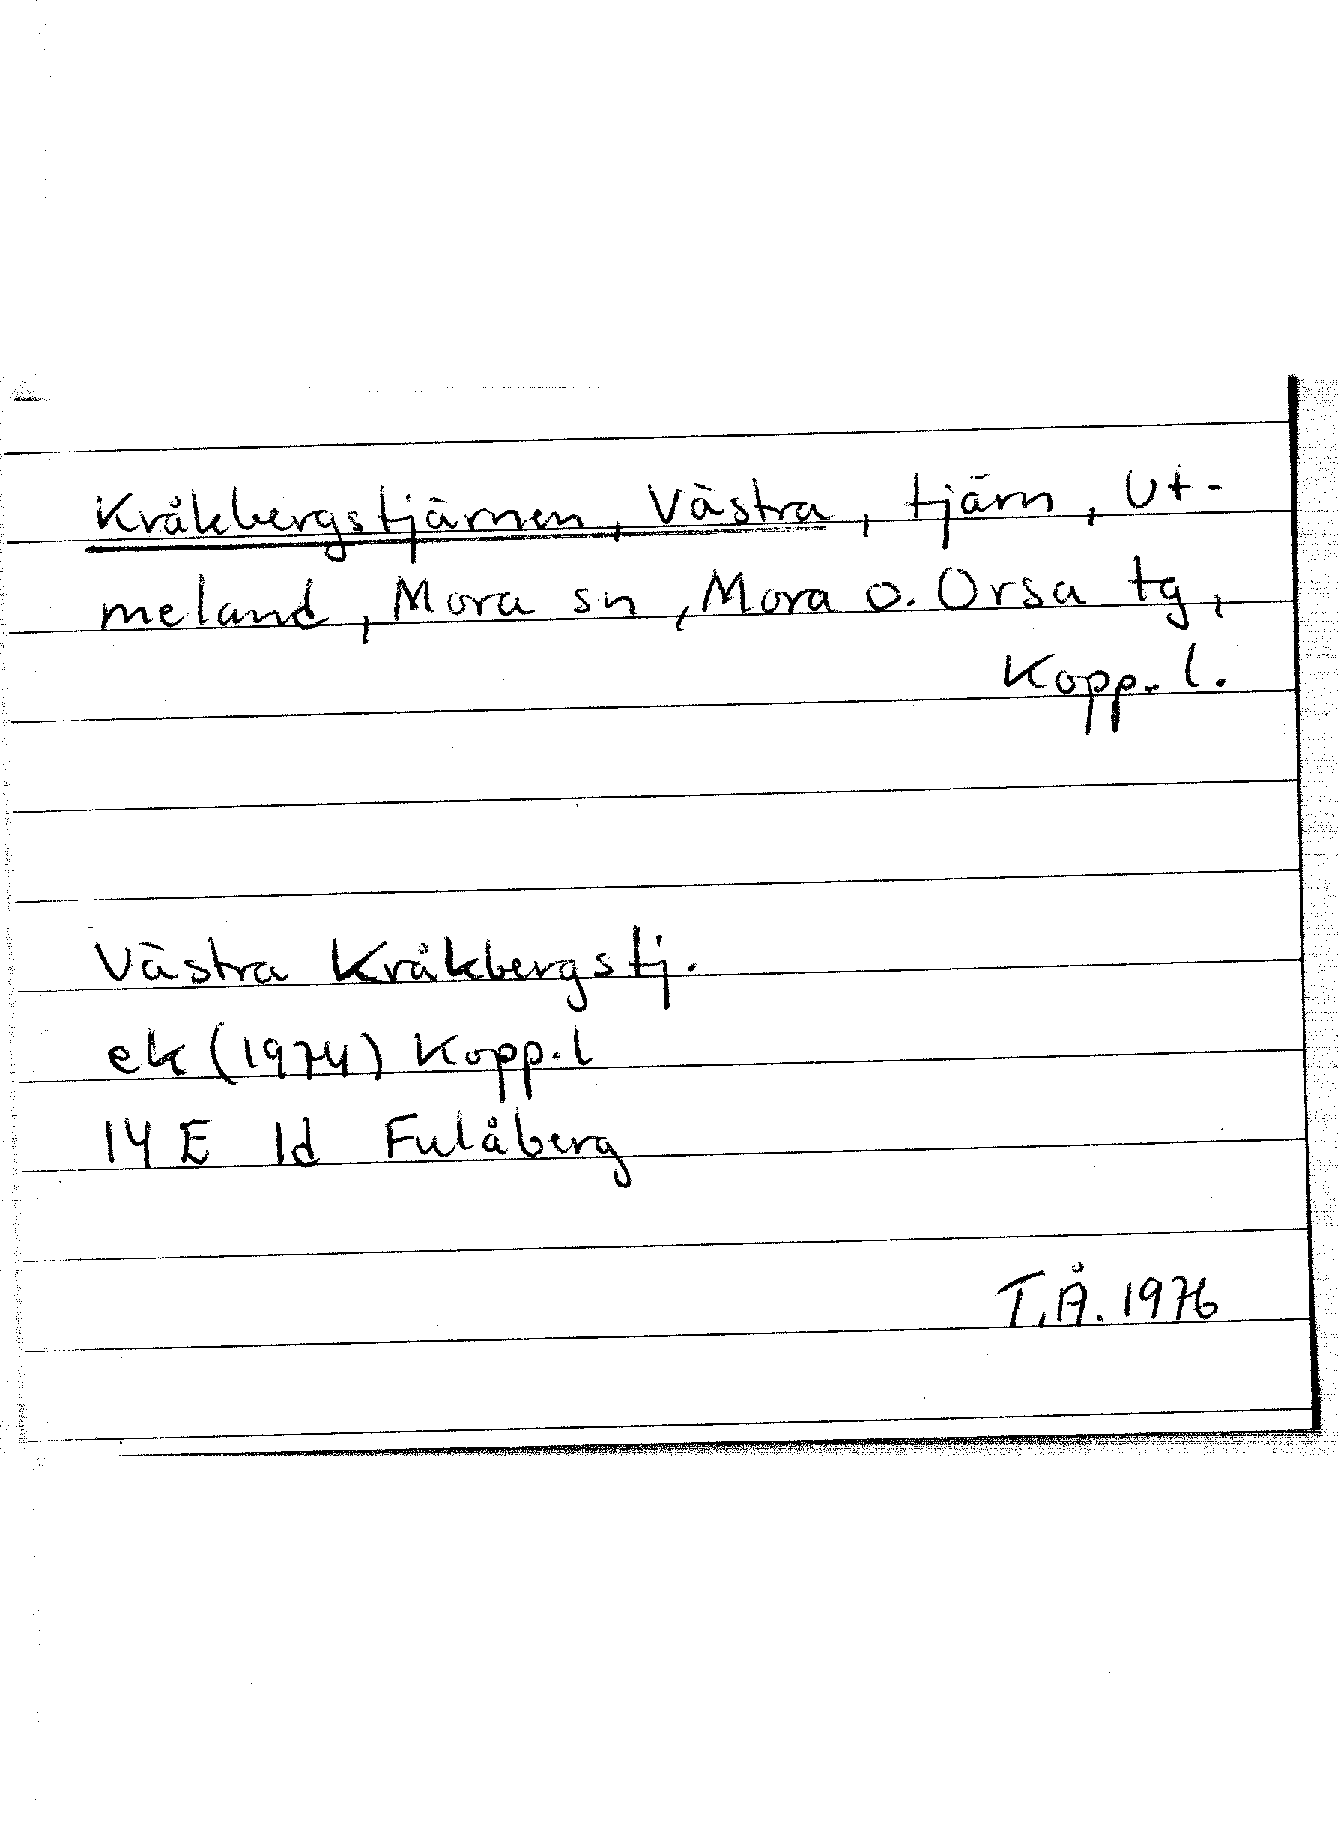 Kråkbergstjärnen, Västra, tjärn, Ut-
meland, Mora sn, Mora o. Orsa tg,
Kopp. l.
Västra Kråkbergstj.
ek (1974) Kopp. l
14 E 1d Fulåberg
T.Å. 1976